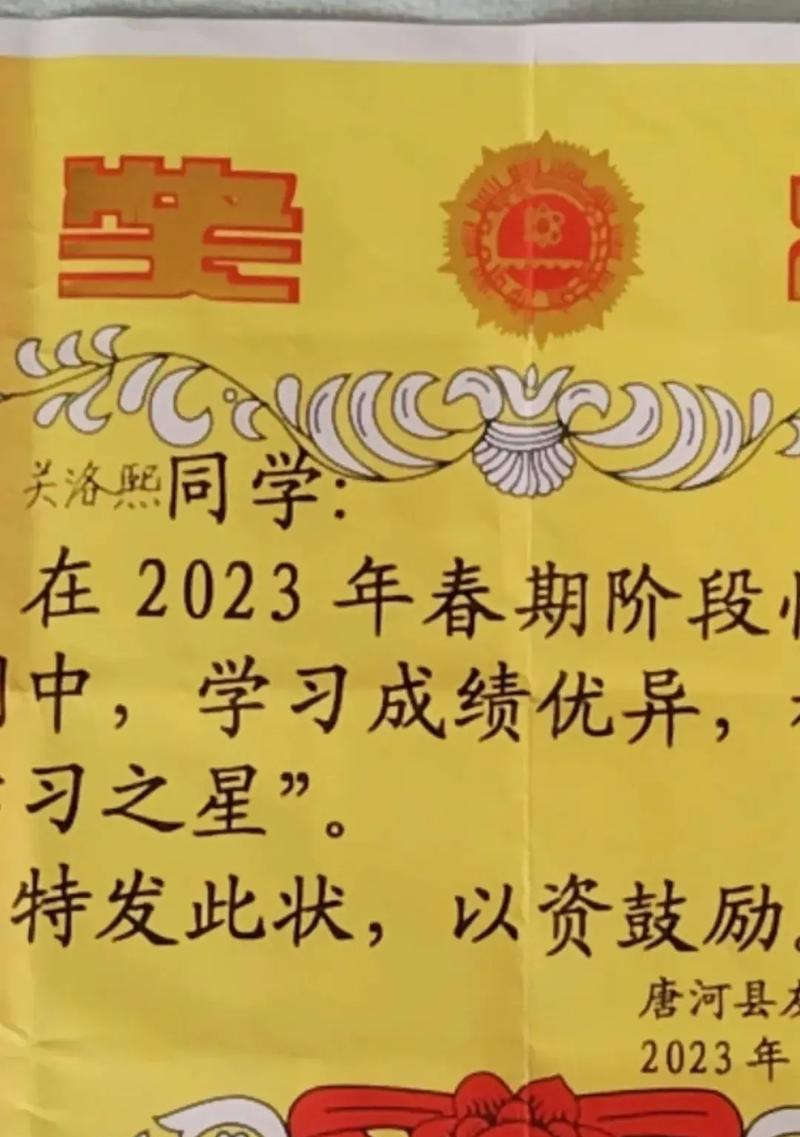 奖
关洛熙同学:
在 2023 年春期阶段
中，学习成绩优异，
习之星”。
特发此状，以资鼓励。
唐河县
2023 年